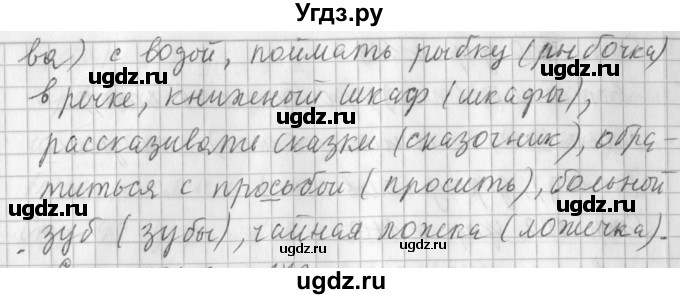 Угдз.ру
ва) с водой, поймать рыбку (рыбочка)
в речке, книжный шкаф (шкафы),
рассказывать сказки (сказочник), обра-
титься с просьбой (просить), больной
зуб (зубы), чайная ложка (ложечка).
ugdz.ru ugdz.ru
ugdz.ru ugdz.ru
ugdz.ru ugdz.ru
ugdz.ru ugdz.ru
ugdz.ru ugdz.ru